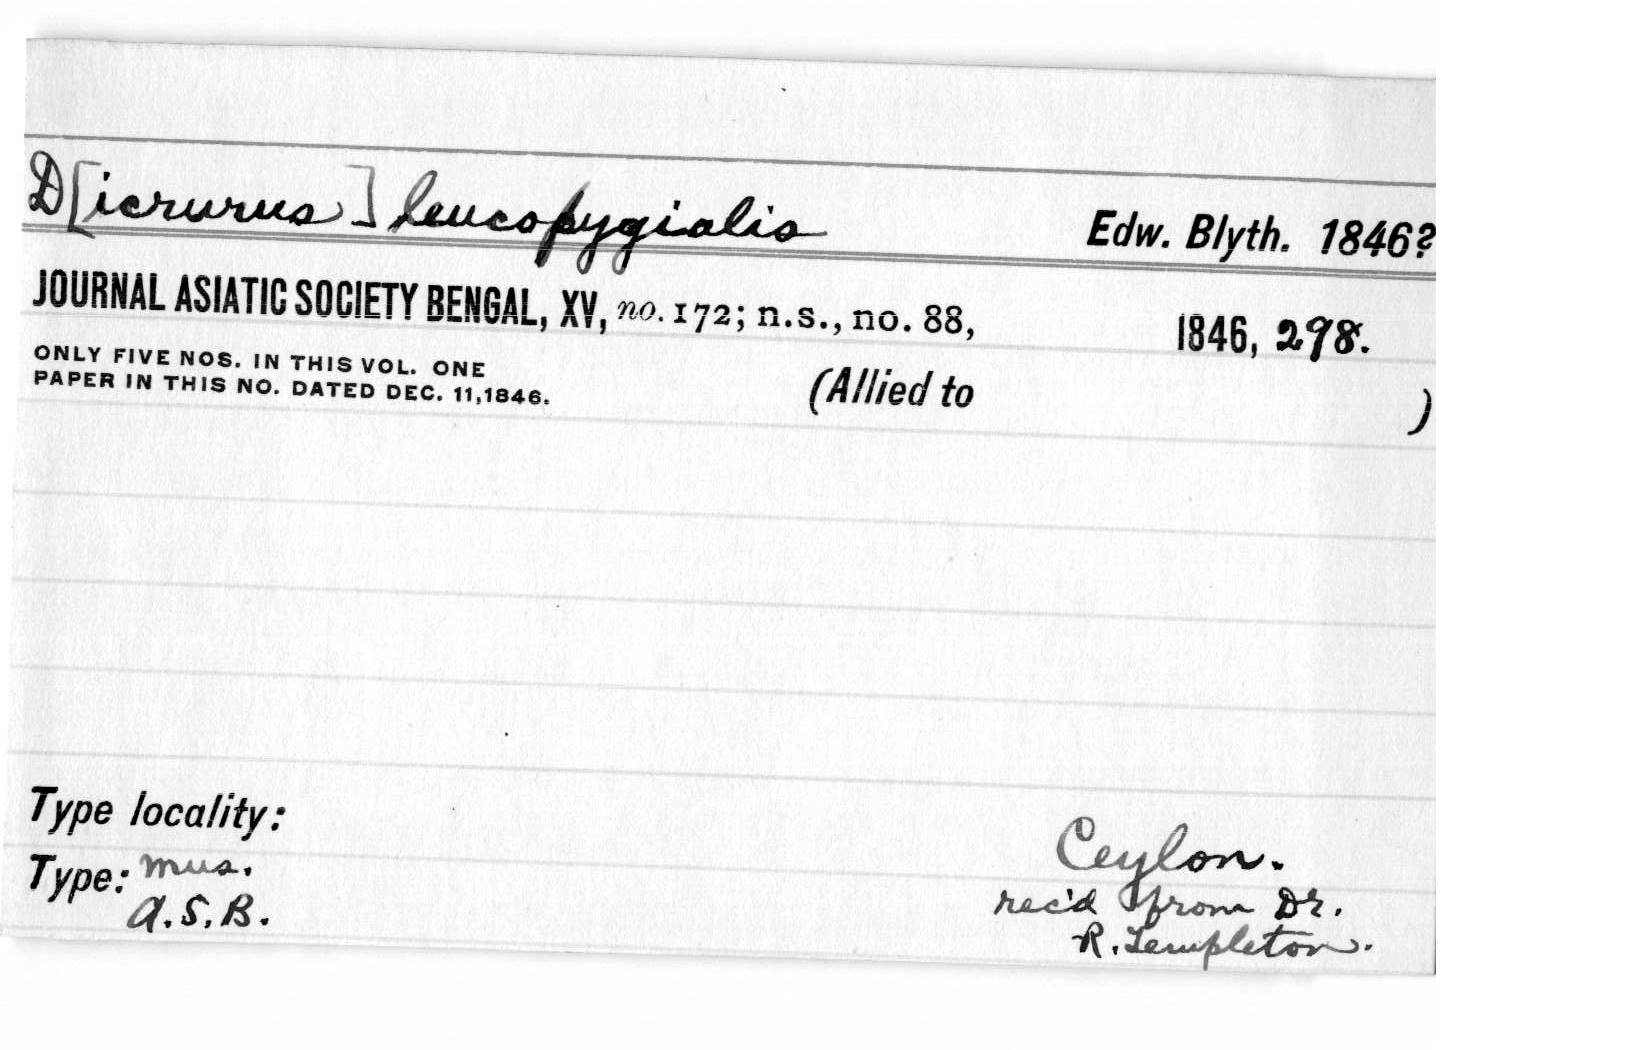 D[icrurus] leucopygialis Edw. Blyth. 1846?
JOURNAL ASIATIC SOCIETY BENGAL, XV, no. 172; n.s., no. 88, 1846, 298.
ONLY FIVE NOS. IN THIS VOL. ONE
PAPER IN THIS NO. DATED DEC. 11, 1846.
(Allied to )
Type locality: Ceylon.
Type: Mus. rec'd from Dr.
A.S.B. R. Templeton.